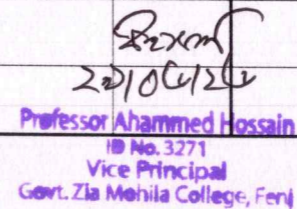 Professor Ahammed Hossain
ID No. 3271
Vice Principal
Govt. Zia Mohila College, Feni